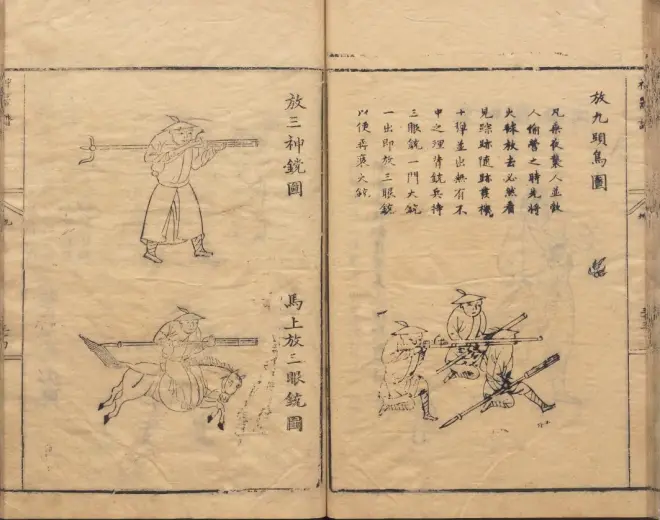 放九頭鳥圖
凡乘夜襲人並敵
人偷營之時先將
火球放去必然看
見踪跡隨跡發機
十彈並出無有不
中之理傍銃兵待
三眼銃一門火銃
一出即放三眼銃
以便再裝火銃
放三神銃圖
馬上放三眼銃圖